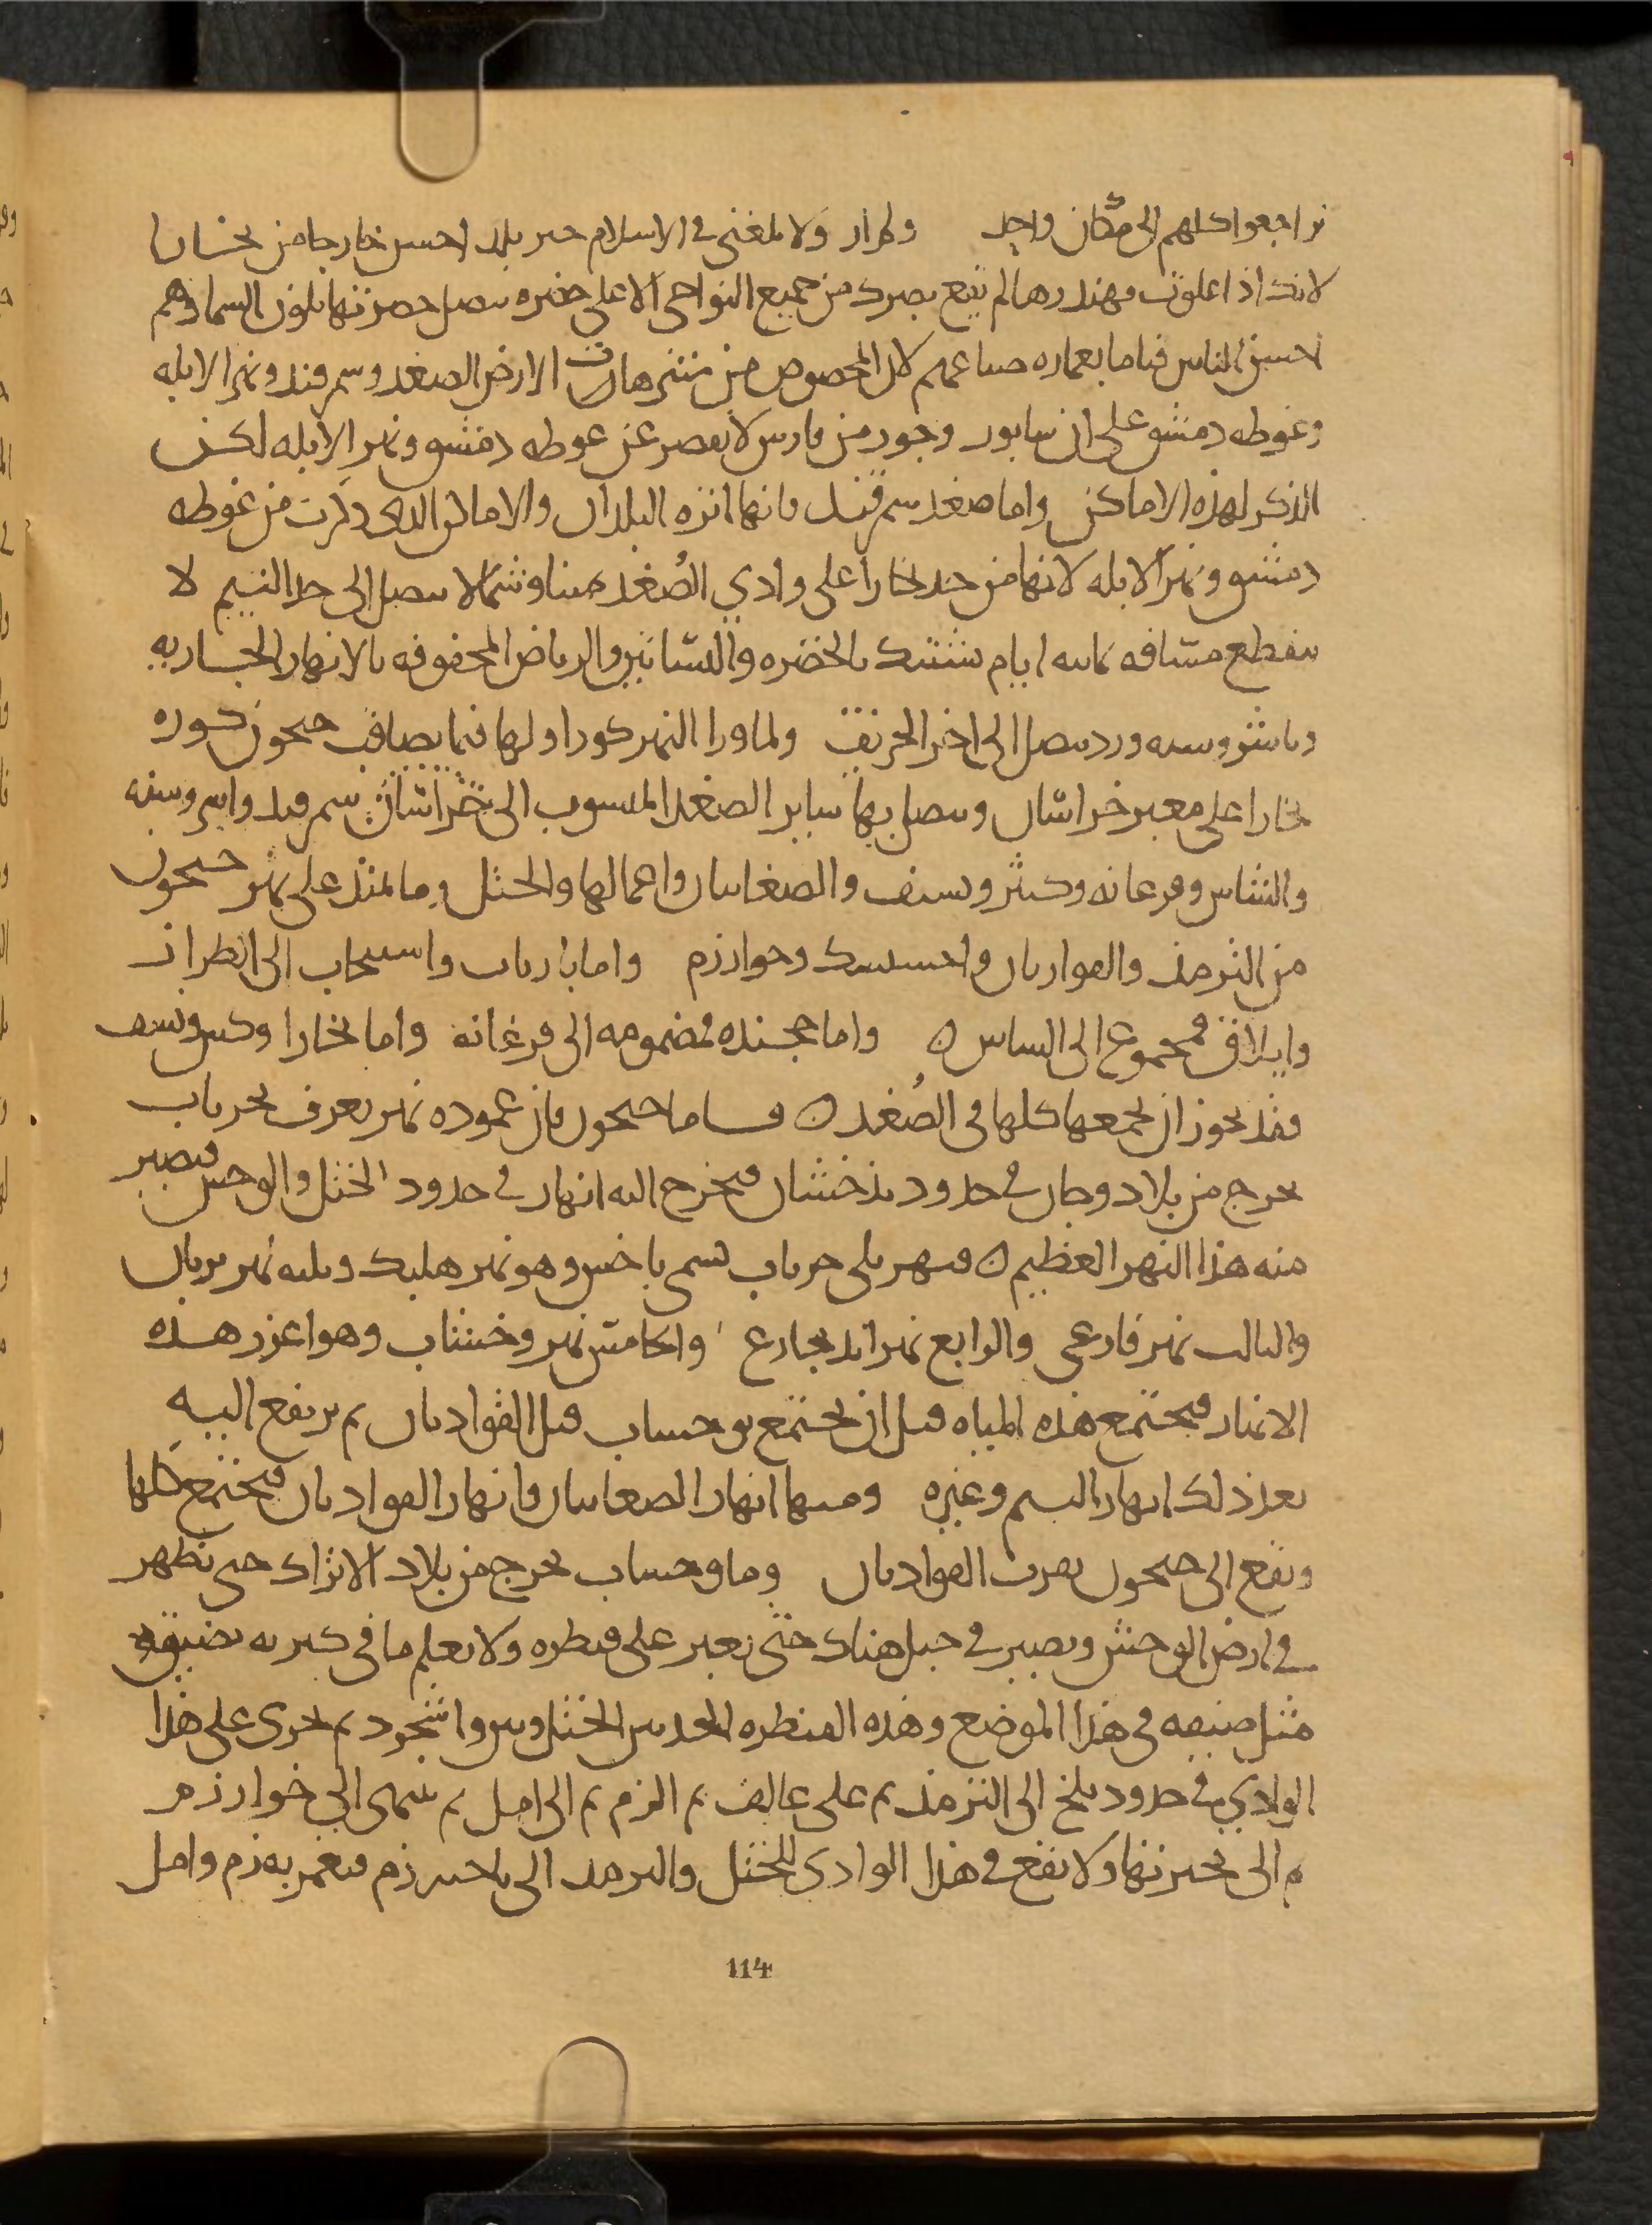 تراجعوا كلهم الى مكان واحد ولم ار ولا بلغني في الاسلام حبر بلد احسن خارجا من بخارا
لانك اذا علوت مهندرها لم يقع بصرك من جميع النواحي الا على خضره يتصل خضرتها بلون السما وهم
احسن الناس قياما بعماره ضياعهم لان المخصوص من متنزهات الارض الصغد وسمرقند ونهر الابله
وغوطه دمشق على ان سابور وجور من فارس لا يقصر عن غوطه دمشق ونهر الابله لكن
الذكر لهذه الاماكن واما صغد سمرقند فانها انزه البلدان والاماكن التي ذكرت من غوطه
دمشق ونهر الابله لانها من حد بخارا على وادي الصُغد يمينا وشمالا يتصل الى حد البتيم لا
ينقطع مسافه ثمانيه ايام تشتبك بالخضره والبساتين والرياض المحفوفه بالانهار الجاريه
ولماورا النهر كور اولها فيما يصاقب جيحون كوره
بخارا على معبر خراسان ويتصل بها ساير الصغد المنسوب الى سمرقند واسروسنه
والشاش وفرغانه وكش ونسف والصغانيان واعمالها والختل وما يمتد على نهر جيحون
من الترمذ والقواديان واخسيسك وخوارزم واما باراب واسبيجاب الى الطراز
وايلاق فمجموع الى الشاش واما خجنده فمضمومه الى فرغانه واما بخارا وكش ونسف
فقد يجوز ان نجمعها كلها في الصُغد فاما جيحون فان عموده نهر يعرف بجرياب
يخرج من بلاد وجان في حدود بذخشان فيخرج اليه انهار في حدود الختل والوخش فيصير
منه هذا النهر العظيم فنهر يلي جرياب يسمى باخش وهو نهر هلبك ويليه نهر بربان
والثالث نهر فارعى والرابع نهر اندیجارع والخامس نهر وخشاب وهو اغزر هذه
الانهار فيجتمع هذه المياه قبل ان يجتمع بوخشاب قبل القواديان ثم يرتفع اليه
بعد ذلك انهار البتم وغيره ومنها انهار الصغانيان وانهار القواديان فيجتمع كلها
ويقع الى جيحون بقرب القواديان وما وخشاب يخرج من بلاد الاتراك حتى يظهر
في ارض الوخش ويصير في جبل هناك حتى يعبر على قنطره ولا يعلم ما في كبره يضيق
مثل ضيقه في هذا الموضع وهذه القنطره الحد بين الختل وبين واشجرد ثم يجري على هذا
الوادي في حدود بلخ الى الترمذ ثم على كالف ثم الزم ثم الى امل ثم ينتهي الى خوارزم
ثم الى بحيرتها ولا يقع في هذا الوادي للختل والترمذ الى ناحيه زم فيعمر به زم وامل
114